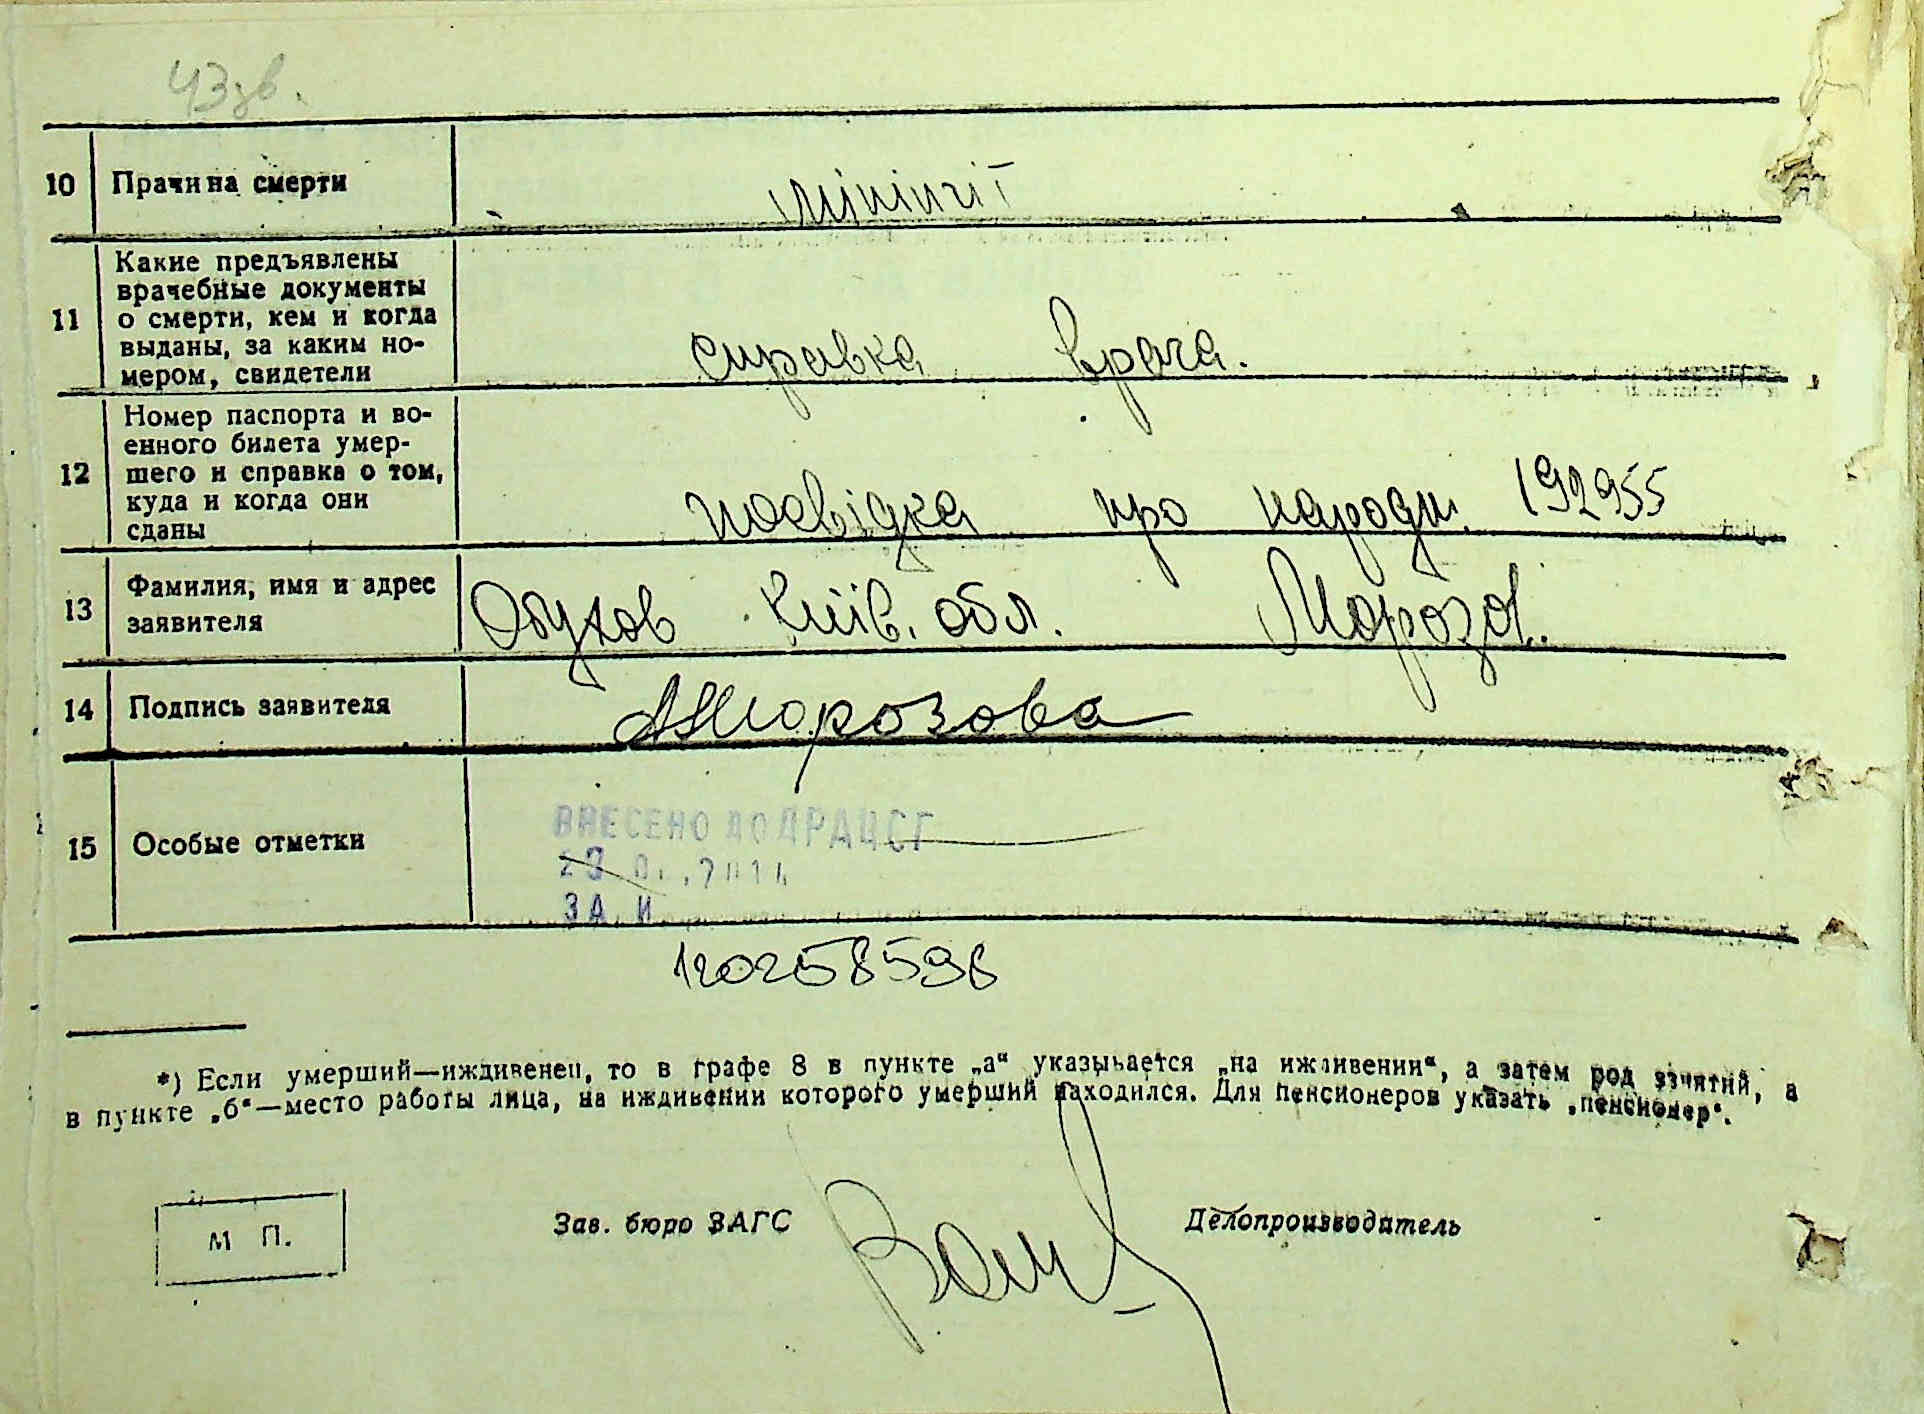 43зв.
10 Причина смерти
мінінгіт
11 Какие предъявлены
врачебные документы
о смерти, кем и когда
выданы, за каким но-
мером, свидетели
справка врача.
12 Номер паспорта и во-
енного билета умер-
шего и справка о том,
куда и когда они
сданы
посвідка про народж. 192955
13 Фамилия, имя и адрес
заявителя
Обухов Київ. обл. Морозов.
14 Подпись заявителя
АМорозова
15 Особые отметки
ВНЕСЕНО ДО ДРАЦСГ
ЗА И
*) Если умерший—иждивенец, то в графе 8 в пункте „а“ указывается „на иждивении“, а затем род занятий, а
в пункте „б“—место работы лица, на иждивении которого умерший находился. Для пенсионеров указать „пенсионер“.
М П.
Зав. бюро ЗАГС
Делопроизводитель